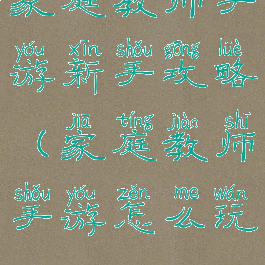 家庭教师手
yóu xīn shǒu gōng lüè
游新手攻略
jiā tíng jiào shī
（家庭教师
shǒu yóu zěn me wán
手游怎么玩